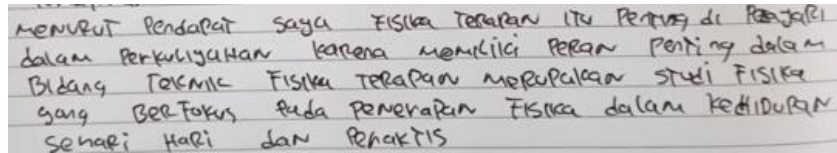 MENURUT PENDAPAT saya FISIKA TERAPAN ITU PENTING di PELAJARI
dalam PERKULIYAHAN KARENA MEMILIKI PERAN PENTING dalam
BIDANG TEKNIK FISIKA TERAPAN MERUPAKAN STUDI FISIKA
yang BERFOKUS PADA PENERAPAN FISIKA dalam KEHIDUPAN
SEHARI HARI dan